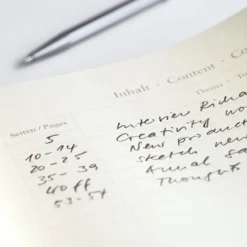 Inhalt · Content · Co
Thema
Seiten / Pages
5 Interview Richa
10-14 Creativity wo
20-25 New product
35-39 sketch new
40 ff Annual
53-54 Thoughts